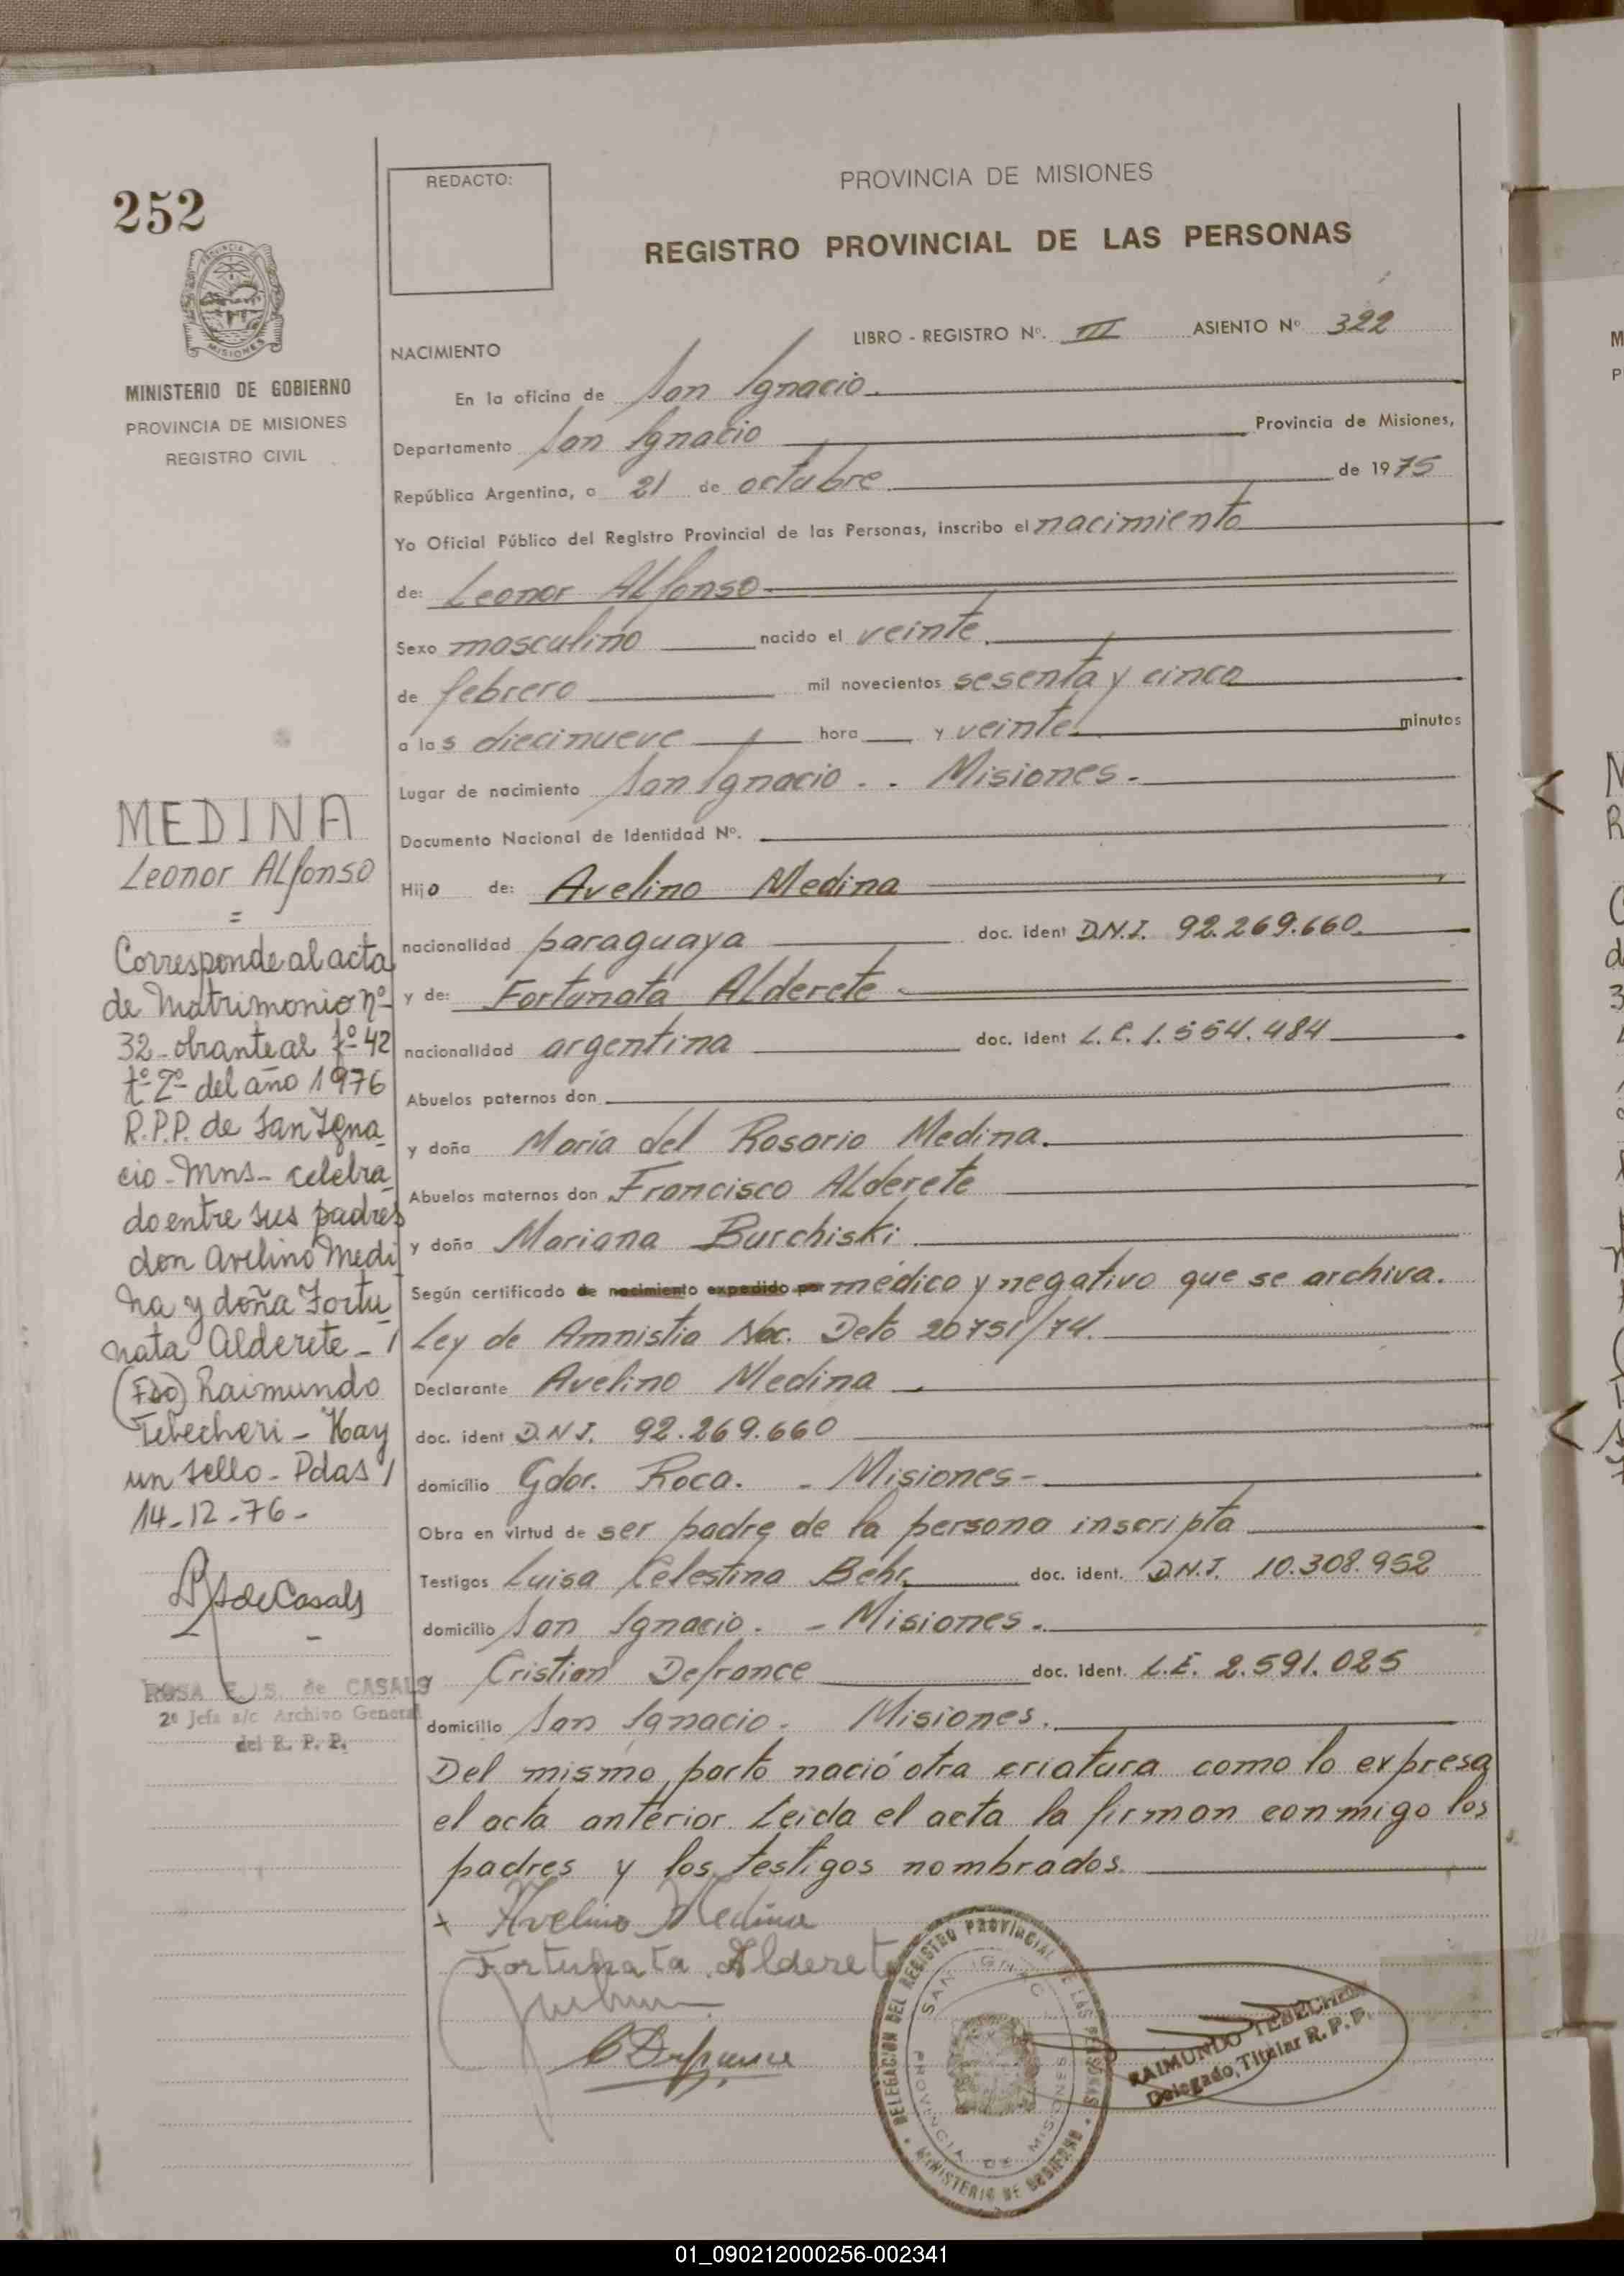 252
REDACTO:
PROVINCIA DE MISIONES
REGISTRO PROVINCIAL DE LAS PERSONAS
PROVINCIA
MISIONES
MINISTERIO DE GOBIERNO
PROVINCIA DE MISIONES
REGISTRO CIVIL
LIBRO - REGISTRO Nº. III ASIENTO Nº 322
NACIMIENTO
En la oficina de San Ignacio.
Departamento San Ignacio Provincia de Misiones,
República Argentina, a 21 de octubre de 1975
Yo Oficial Público del Registro Provincial de las Personas, inscribo el nacimiento
de: Leonor Alfonso
Sexo masculino nacido el veinte.
de febrero mil novecientos sesenta y cinco
a las diecinueve hora y veinte. minutos
Lugar de nacimiento San Ignacio . . Misiones.
Documento Nacional de Identidad Nº.
Hijo de: Avelino Medina
nacionalidad paraguaya doc. ident D.N.I. 92.269.660.
y de: Fortunata Alderete
nacionalidad argentina doc. ident L.C. 1.554.484
Abuelos paternos don
y doña María del Rosario Medina.
Abuelos maternos don Francisco Alderete
y doña Mariana Burchiski
Según certificado de nacimiento expedido por médico y negativo que se archiva.
Ley de Amnistia Nac. Deto 20751/74.
Declarante Avelino Medina
doc. ident D.N.I. 92.269.660
domicilio Gdor. Roca. - Misiones-
Obra en virtud de ser padre de la persona inscripta
Testigos Luisa Celestina Behr doc. ident. D.N.I. 10.308.952
domicilio San Ignacio. - Misiones.
Cristian Defrance doc. ident. L.E. 2.591.025
domicilio San Ignacio. Misiones.
Del mismo parto nació otra criatura como lo expresa
el acta anterior. Leida el acta la firman conmigo los
padres y los testigos nombrados.
MEDINA
Leonor Alfonso
=
Corresponde al acta
de Matrimonio nº
32-obrante al fº 42
tº 2º del año 1976
R.P.P. de San Igna-
cio-Mns- celebra
do entre sus padres
don Avelino Medi
na y doña Fortu
nata Alderete-
(Fdo) Raimundo
Tebecheri - Hay
un sello - Pdas
14-12-76-
de Casals
ROSA E. S. de CASALS
2º Jefa a/c Archivo General
del R. P. P.
Avelino Medina
Fortunata Alderete
C Defrance
DELEGACION DEL REGISTRO PROVINCIAL DE LAS PERSONAS
SAN IGNACIO
PROVINCIA DE MISIONES
MINISTERIO DE GOBIERNO
RAIMUNDO TEBECHERI
Delegado Titular R.P.P.
01_090212000256-002341